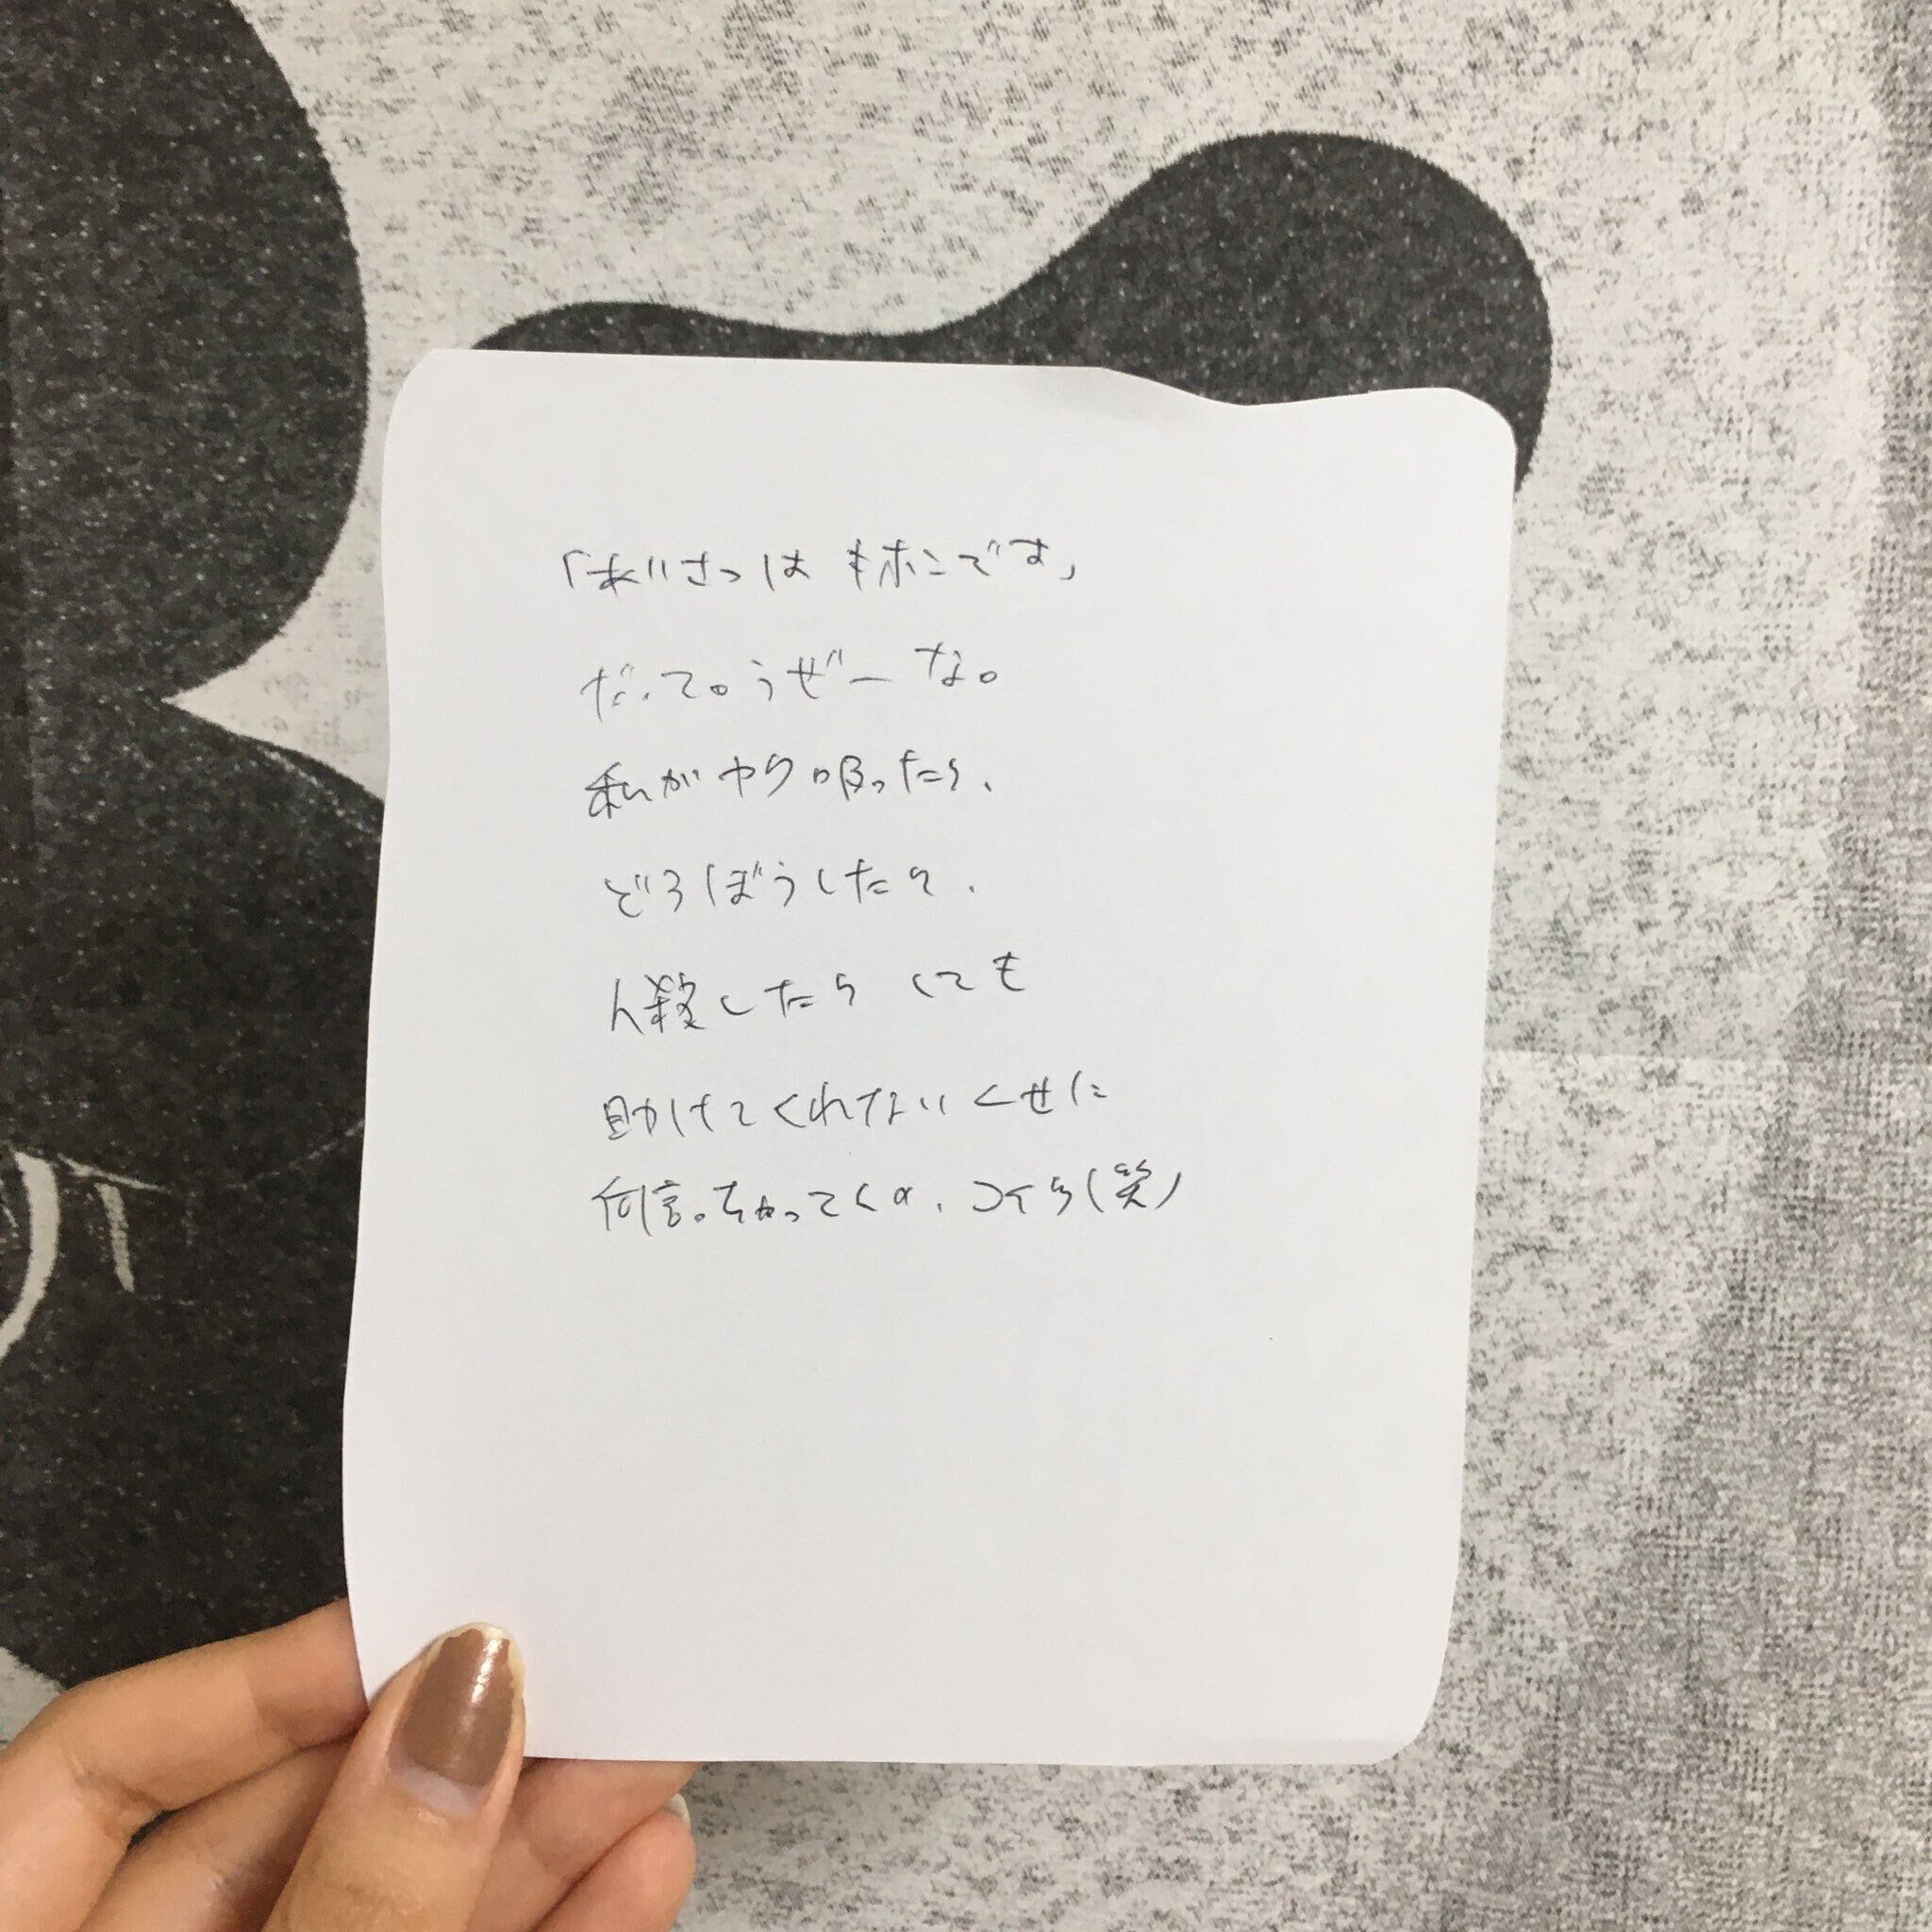 「あいさつはキホンです」
だって。うぜーな。
私がヤク吸ったり、
どろぼうしたり、
人殺したりしても
助けてくれないくせに
何言っちゃってんの、コイツ(笑)